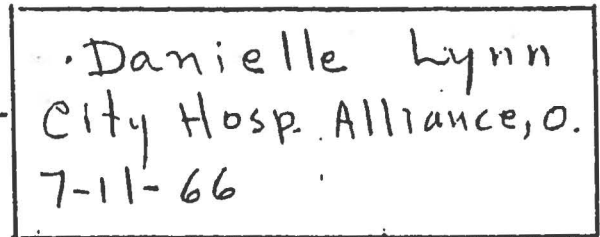 Danielle Lynn
City Hosp. Alliance, O.
7-11-66